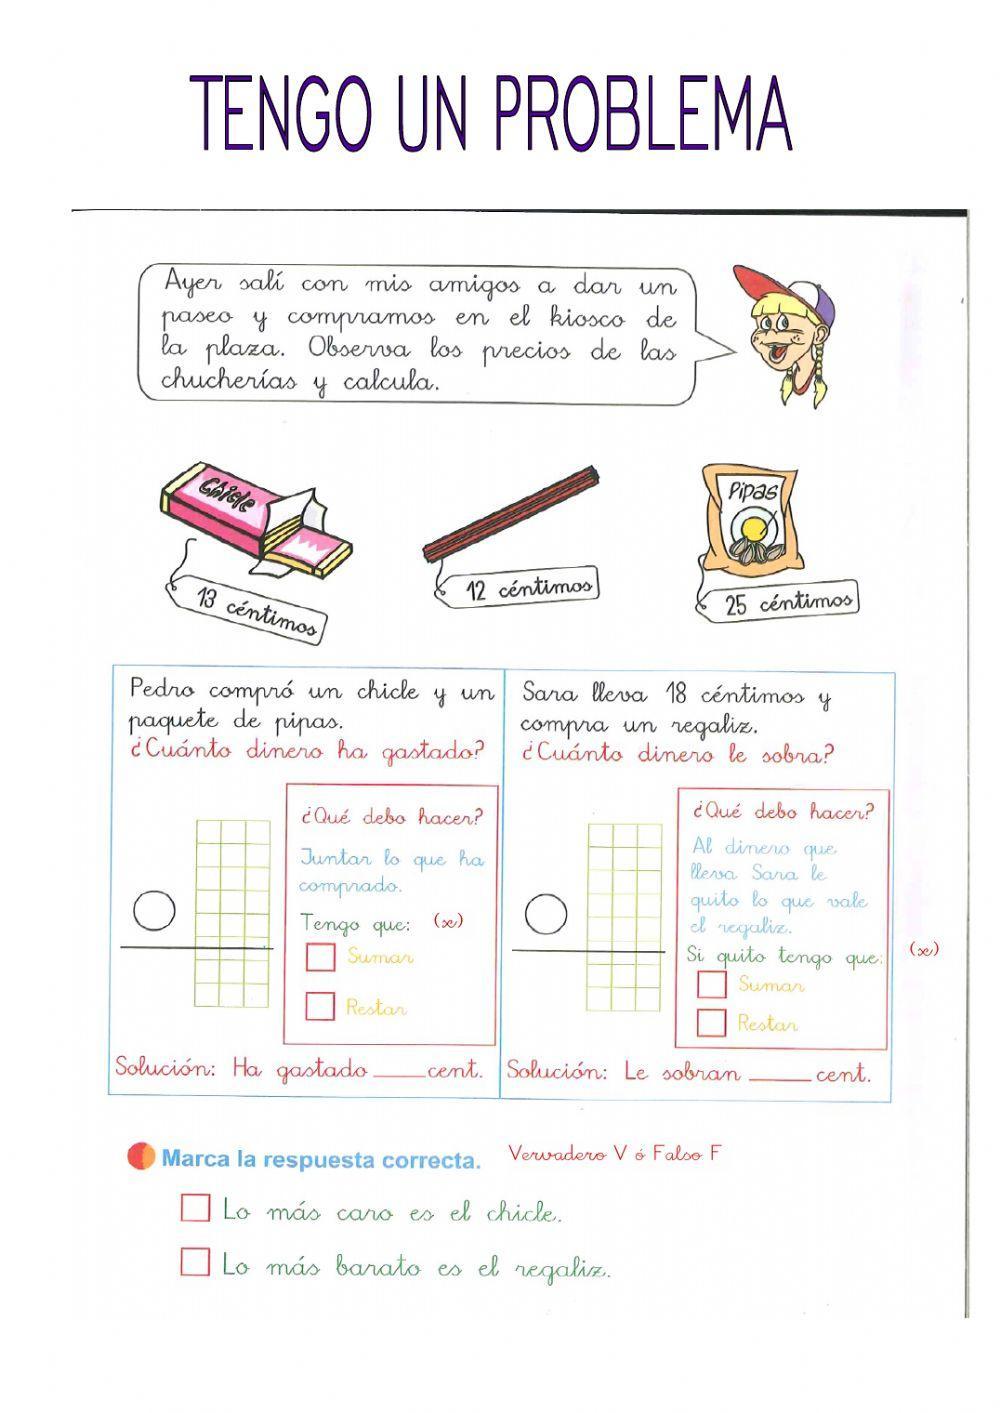 TENGO UN PROBLEMA
Ayer salí con mis amigos a dar un
paseo y compramos en el kiosco de
la plaza. Observa los precios de las
chucherías y calcula.
Chicle
Pipas
13 céntimos
12 céntimos
25 céntimos
Pedro compró un chicle y un
paquete de pipas.
¿Cuánto dinero ha gastado?
¿Qué debo hacer?
Juntar lo que ha
comprado.
Tengo que: (x)
Sumar
Restar
Solución: Ha gastado ____ cent.
Sara lleva 18 céntimos y
compra un regaliz.
¿Cuánto dinero le sobra?
¿Qué debo hacer?
Al dinero que
lleva Sara le
quito lo que vale
el regaliz.
Si quito tengo que: (x)
Sumar
Restar
Solución: Le sobran ____ cent.
Marca la respuesta correcta. Vervadero V ó Falso F
Lo más caro es el chicle.
Lo más barato es el regaliz.